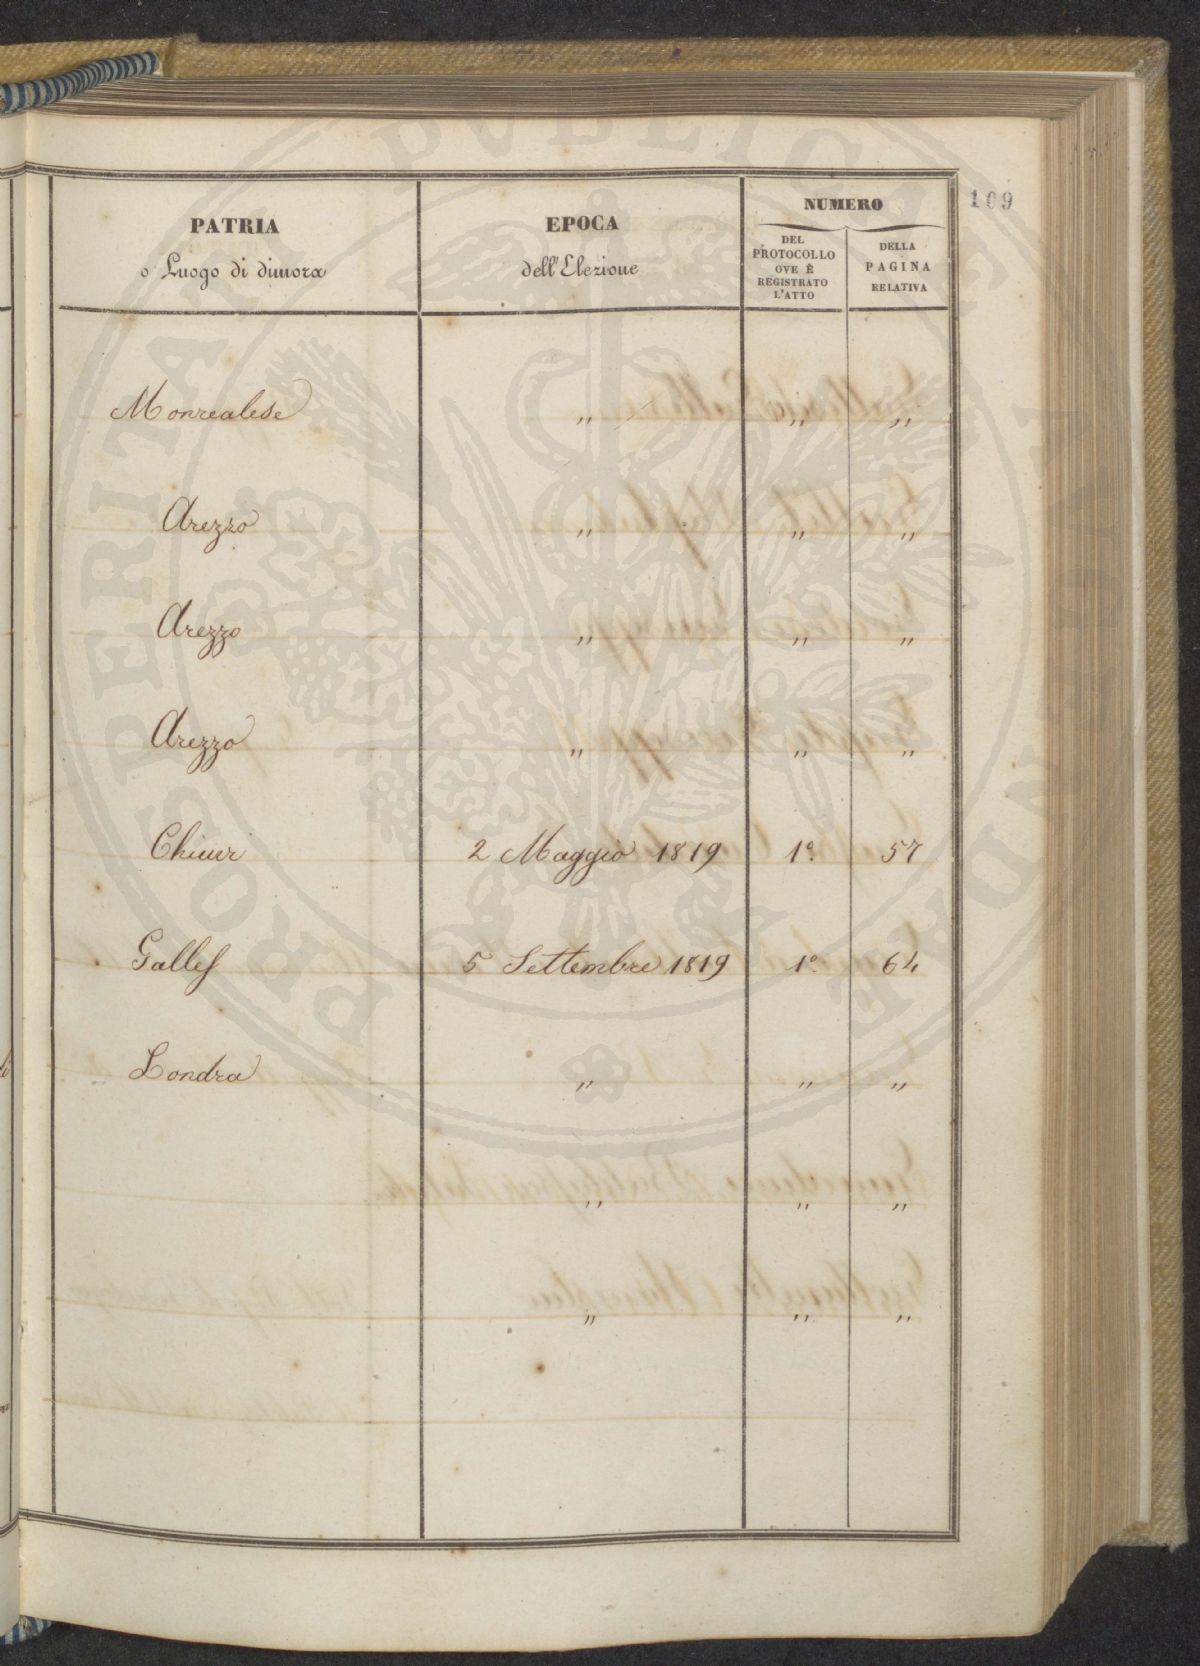 109
PATRIA
o Luogo di dimora
EPOCA
dell'Elezione
NUMERO
DEL
PROTOCOLLO
OVE È
REGISTRATO
L'ATTO
DELLA
PAGINA
RELATIVA
Monrealese " " "
Arezzo " " "
Arezzo " " "
Arezzo " " "
Chiusi 2 Maggio 1819 1º. 57
Galles 5 Settembre 1819 1º. 64
Londra " " "
" " "
" " "
PROSPERITATI PVBLICAE